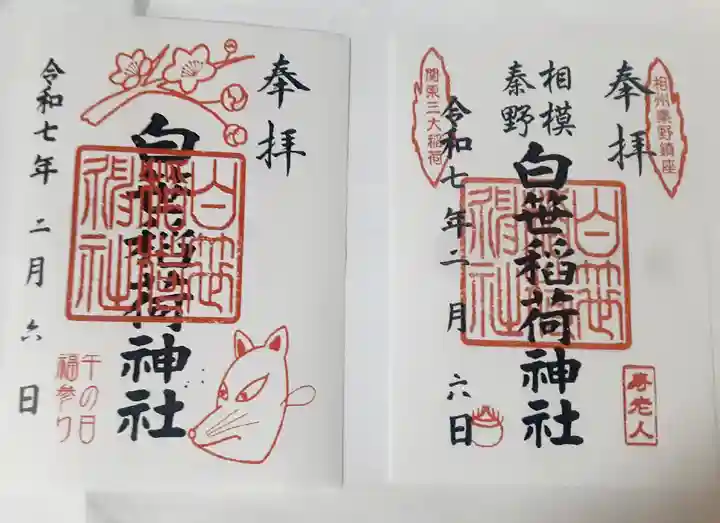 奉拝
白笹稲荷神社
白笹稲荷社
令和七年二月六日
午の日
福参り
奉拝
相州秦野鎮座
相模
秦野
白笹稲荷神社
関東三大稲荷
令和七年二月六日
寿老人